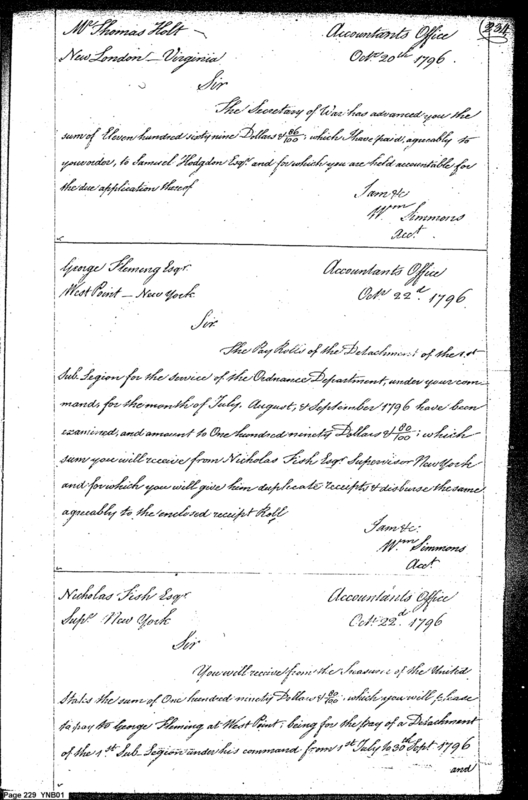 234
Mr Thomas Holt Accountants Office
New London - Virginia Octr 20th 1796.
Sir
The Secretary of War has advanced you the
sum of Eleven hundred sixty nine Dollars & 86/100; which I have paid, agreeably to
your order, to Samuel Hodgdon Esqr and for which you are held accountable for
the due application thereof
I am &c
Wm Simmons
Acct.
George Fleming Esqr. Accountants Office
West Point - New York. Octr 22d. 1796.
Sir.
The Pay Rolls of the Detachment of the 1.st
Sub. Legion for the service of the Ordnance Department, under your com-
mands for the month of July, August, & September 1796 have been
examined, and amount to One hundred ninety Dollars & 80/100; which
sum you will receive from Nicholas Fish Esqr Supervisor New York
and for which you will give him duplicate receipts & disburse the same
agreeably to the enclosed receipt Roll
I am &c.
Wm. Simmons
Acct
Nicholas Fish Esqr Accountants Office
Supr. New York Octr 22d. 1796
Sir
You will receive from the Treasurer of the United
States the sum of One hundred ninety Dollars & 80/100; which you will please
to pay to George Fleming at West Point; being for the pay of a Detachment
of the 1st Sub. Legion under his command from 1st July to 30th Sept 1796
and
Page 229 YNB01